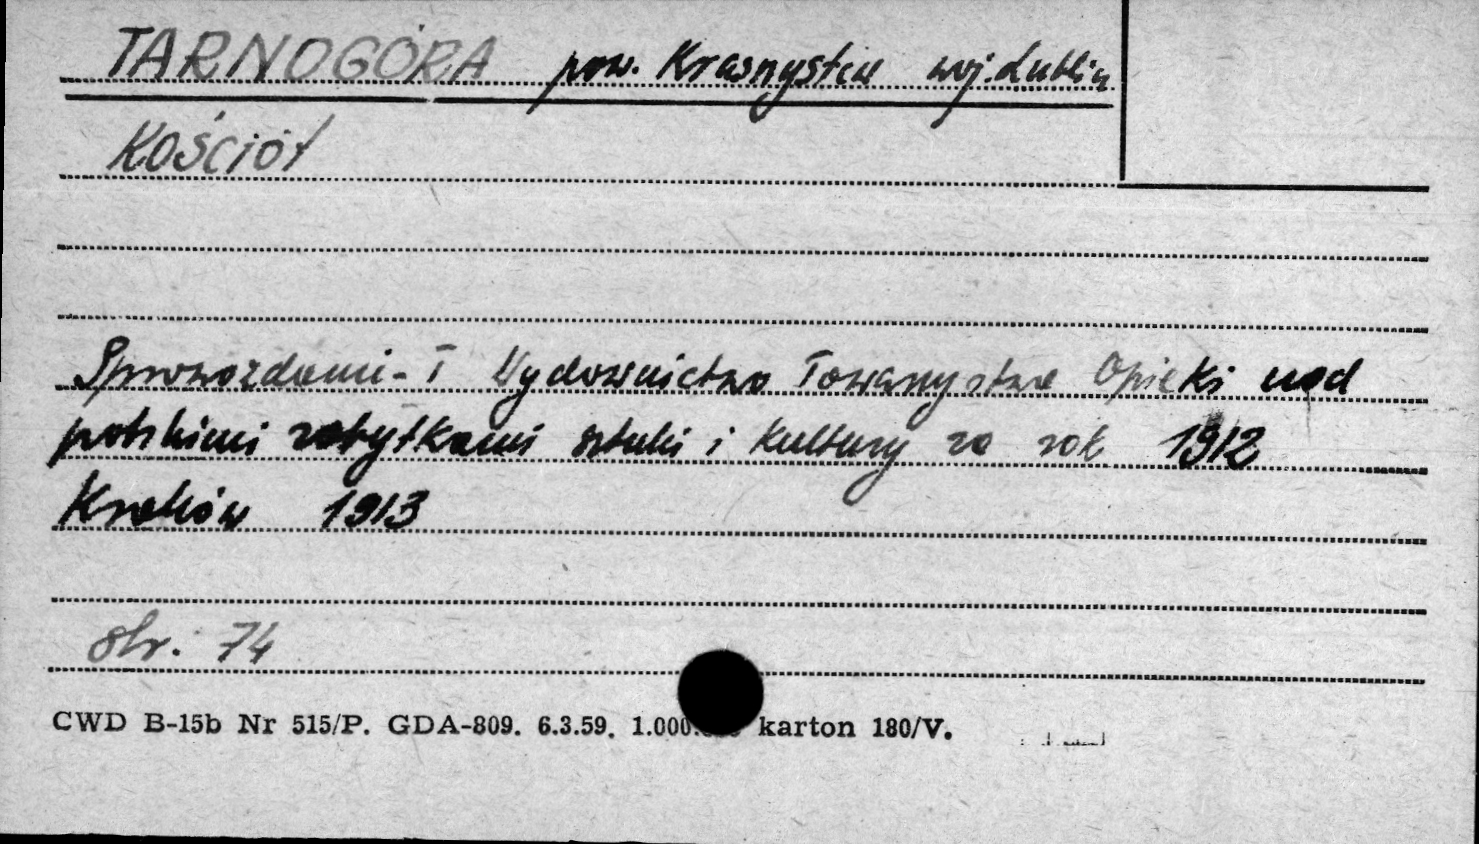 TARNOGÓRA pow. Krasnystaw woj. Lublin
KOŚCIÓŁ
Sprawozdani- I Wydawnictwo Towarzystwa Opieki nad
polskimi zabytkami sztuki i kultury za rok 1912
Kraków 1913
str. 74
CWD B-15b Nr 515/P. GDA-809. 6.3.59. 1.000. karton 180/V.